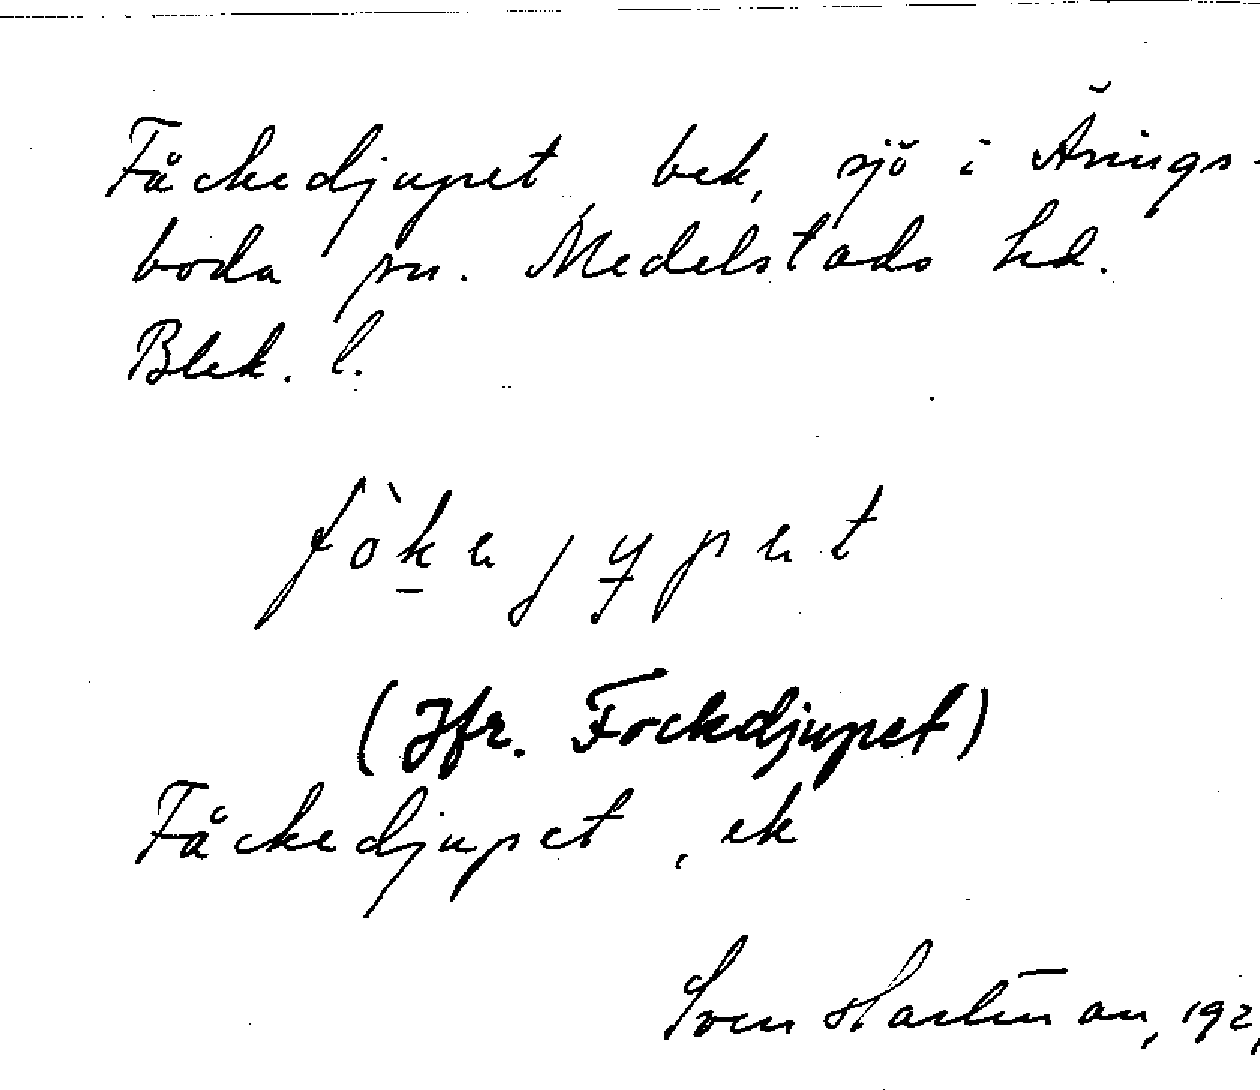 Fåckedjupet bek, sjö i Ärings-
boda sn. Medelstads hd.
Blek. l.
fòkejupet
(Jfr. Fockdjupet)
Fåckedjupet, ek
Sven Hartman, 192